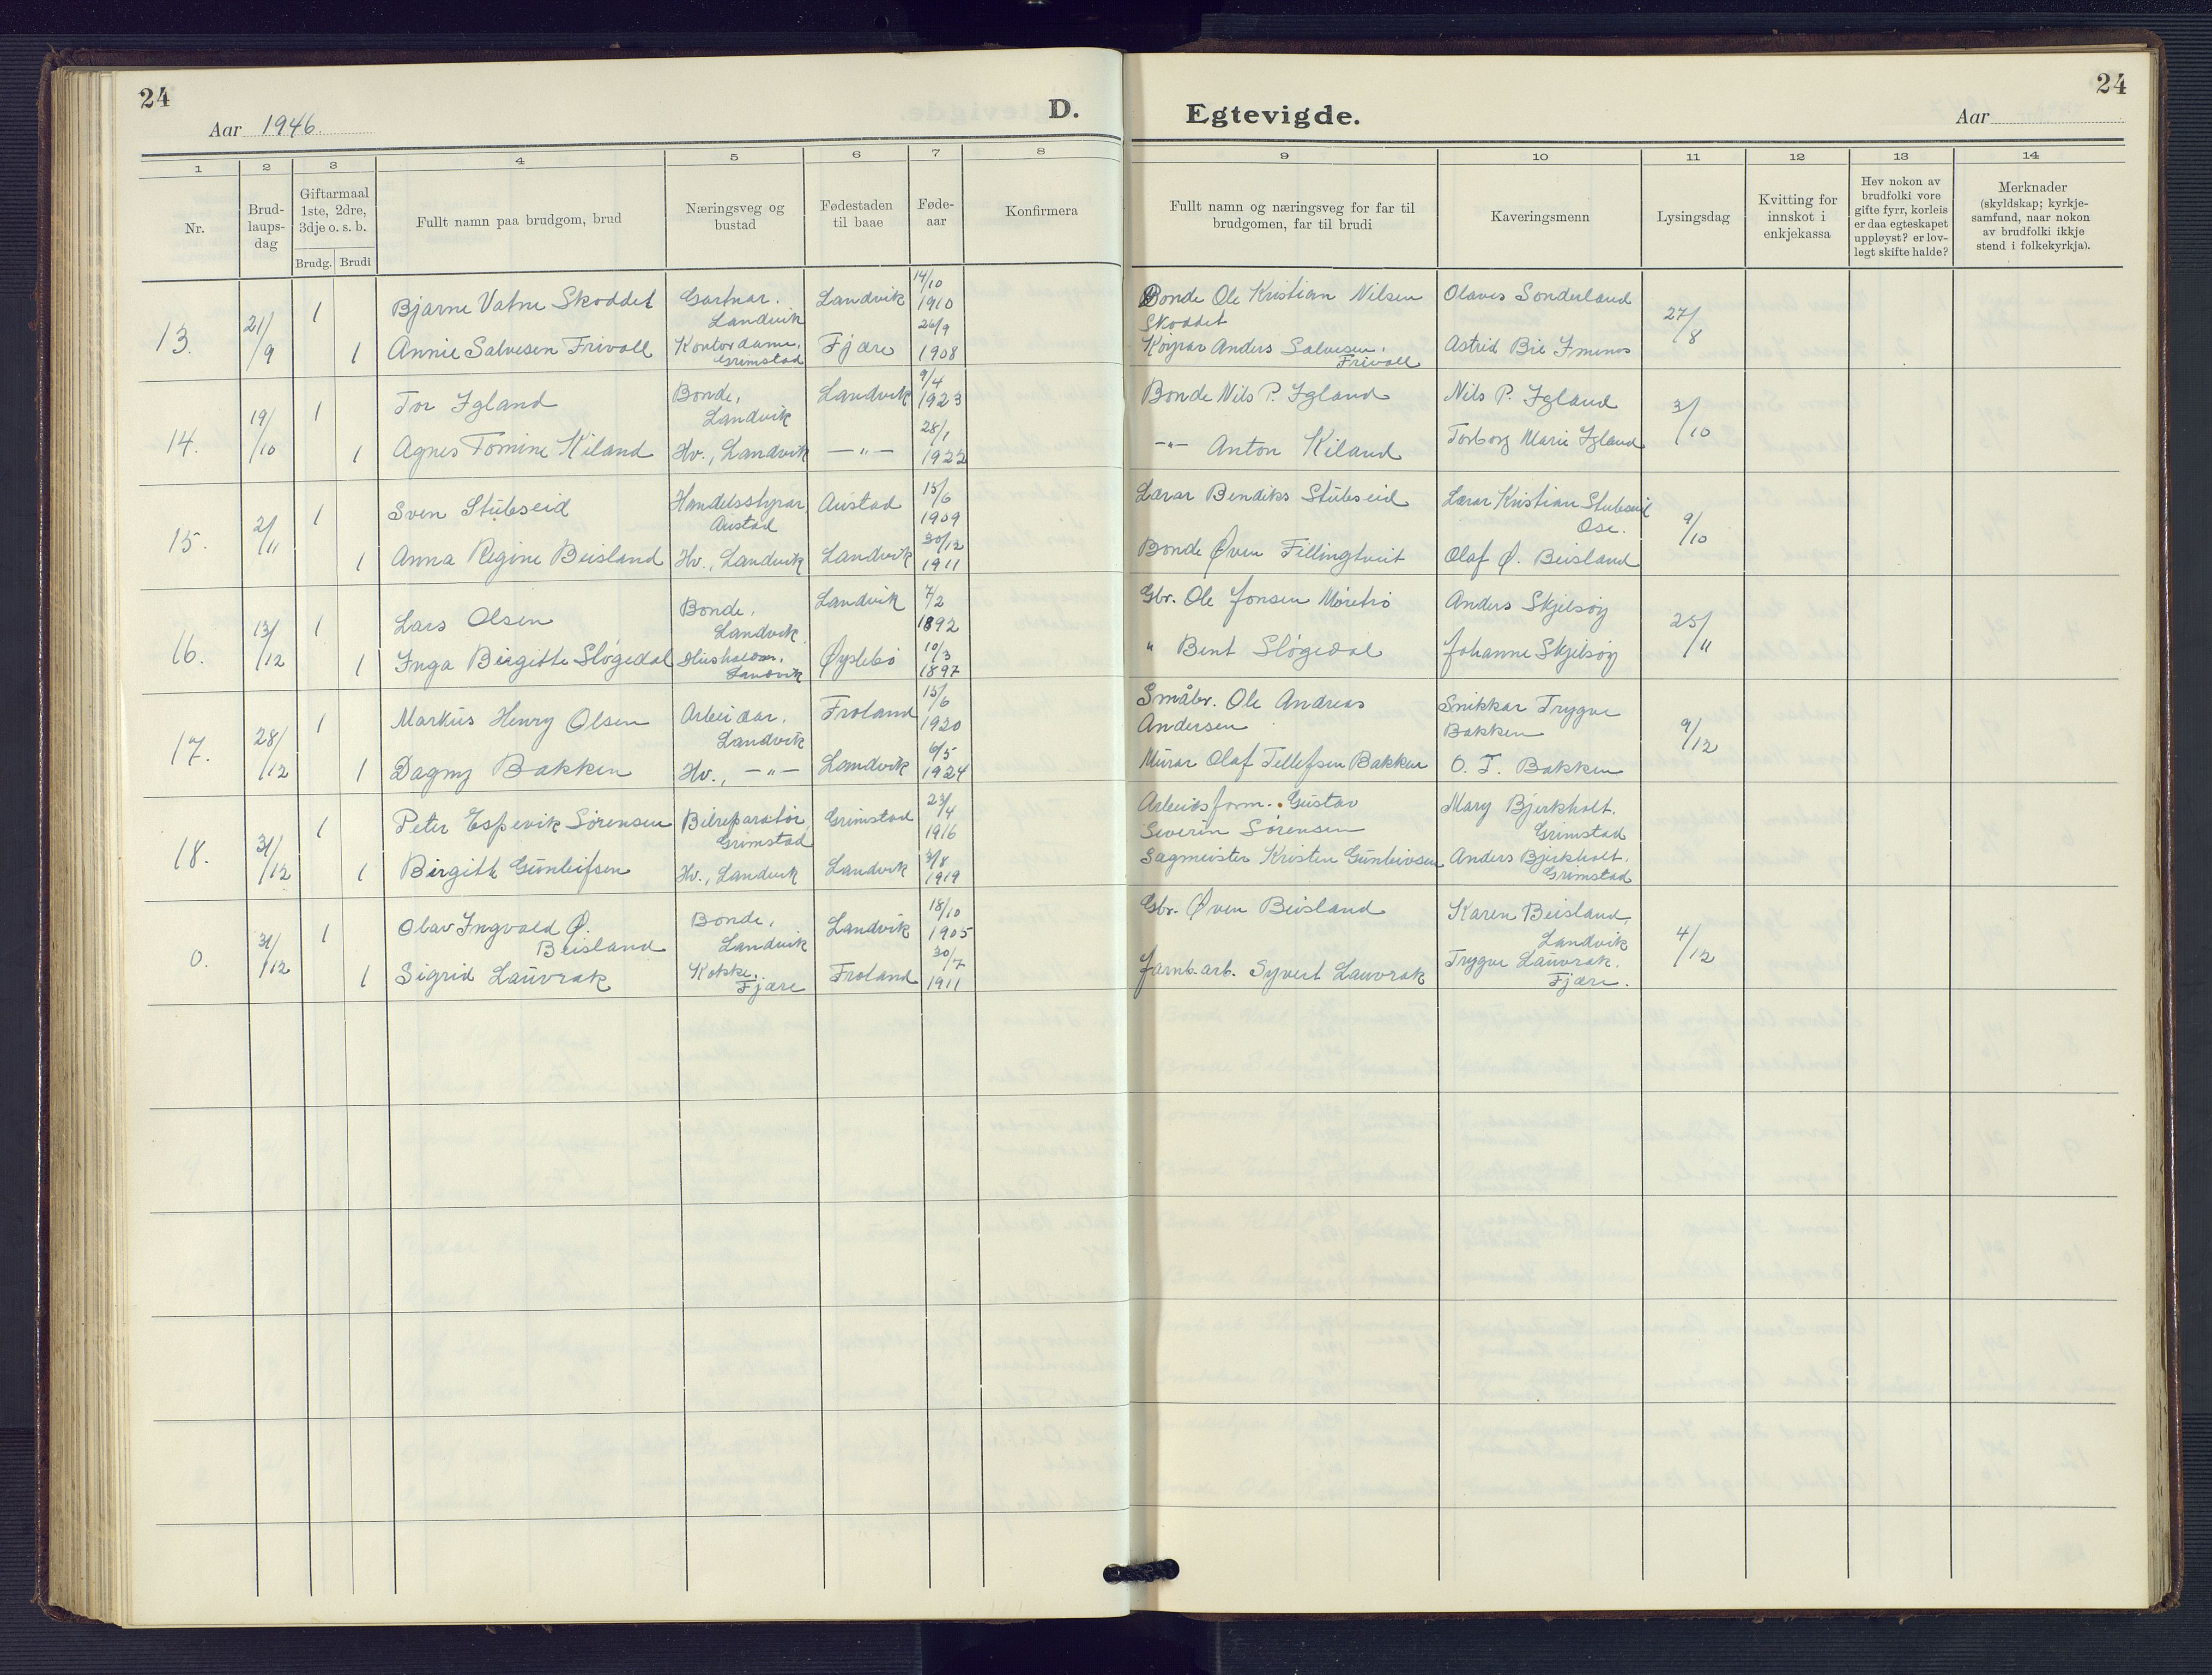 24
Aar 1946.
D.
Egtevigde.
Aar
24
1
2
3
4
5
6
7
8
9
10
11
12
13
14
Nr.
Brud-
laups-
dag
Giftarmaal
1ste, 2dre,
3dje o. s. b.
Brudg.
Brudi
Fullt namn paa brudgom, brud
Næringsveg og
bustad
Fødestaden
til baae
Føde-
aar
Konfirmera
Fullt namn og næringsveg for far til
brudgomen, far til brudi
Kaveringsmenn
Lysingsdag
Kvitting for
innskot i
enkjekassa
Hev nokon av
brudfolki vore
gifte fyrr, korleis
er daa egteskapet
uppløyst? er lov-
legt skifte halde?
Merknader
(skyldskap; kyrkje-
samfund, naar nokon
av brudfolki ikkje
stend i folkekyrkja).
13. 21/9
1 Bjarne Vatne Skoddet Gartnar. Landvik Landvik 14/10 1910
Bonde Ole Kristian Nilsen Skoddet Olaves Sonderland 27/8
1 Annie Salvesen Frivoll Kontordame. Grimstad Fjære 26/9 1908
Køyrar Anders Salvesen. Frivoll Astrid Bie
14. 19/10
1 Tor Igland Bonde, Landvik Landvik 9/4 1923
Bonde Nils P. Igland Nils P. Igland 3/10
1 Agnes Tomine Kiland Hv., Landvik —"— 28/1 1922
—"— Anton Kiland Torborg Marie Igland
15. 2/11
1 Sven Stubseid Handelsstyrar Austad Austad 15/6 1909
Lærar Bendiks Stubseid Lærar Kristian Stubseid Ose. 9/10
1 Anna Regine Beisland Hv., Landvik Landvik 30/12 1911
Bonde Øven Fillingtveit Olaf Ø. Beisland
16. 13/12
1 Lars Olsen Bonde, Landvik Landvik 7/2 1892
Gbr. Ole Jonsen Møretrø Anders Skjelsøy 25/11
1 Inga Birgitte Sløgedal Landvik Øyslebø 10/3 1897
" Bent Sløgedal Johanne Skjelsøy
17. 28/12
1 Markus Henry Olsen Arbeidar. Landvik Froland 15/6 1920
Småbr. Ole Andreas Andersen Snikkar Trygve Bakken 9/12
1 Dagny Bakken Hv., —"— Landvik 6/5 1924
Murar Olaf Tellefsen Bakken O. T. Bakken
18. 31/12
1 Peter Espevik Sørensen Bilreparatør, Grimstad Grimstad 23/4 1916
Arbeidsform. Gustav Severin Sørensen Mary Bjerkholt. Grimstad
1 Birgith Gunleifsen Hv., Landvik Landvik 3/8 1919
Sagmeister Kristen Gunleivsen Anders Bjerkholt. Grimstad
0. 31/12
1 Olav Ingvald Ø. Beisland Bonde, Landvik Landvik 18/10 1905
Gbr. Øven Beisland Karen Beisland, Landvik 4/12
1 Sigrid Lauvrak Kokke. Fjære Froland 30/7 1911
Jarnb.arb. Syvert Lauvrak Trygve Lauvrak. Fjære.